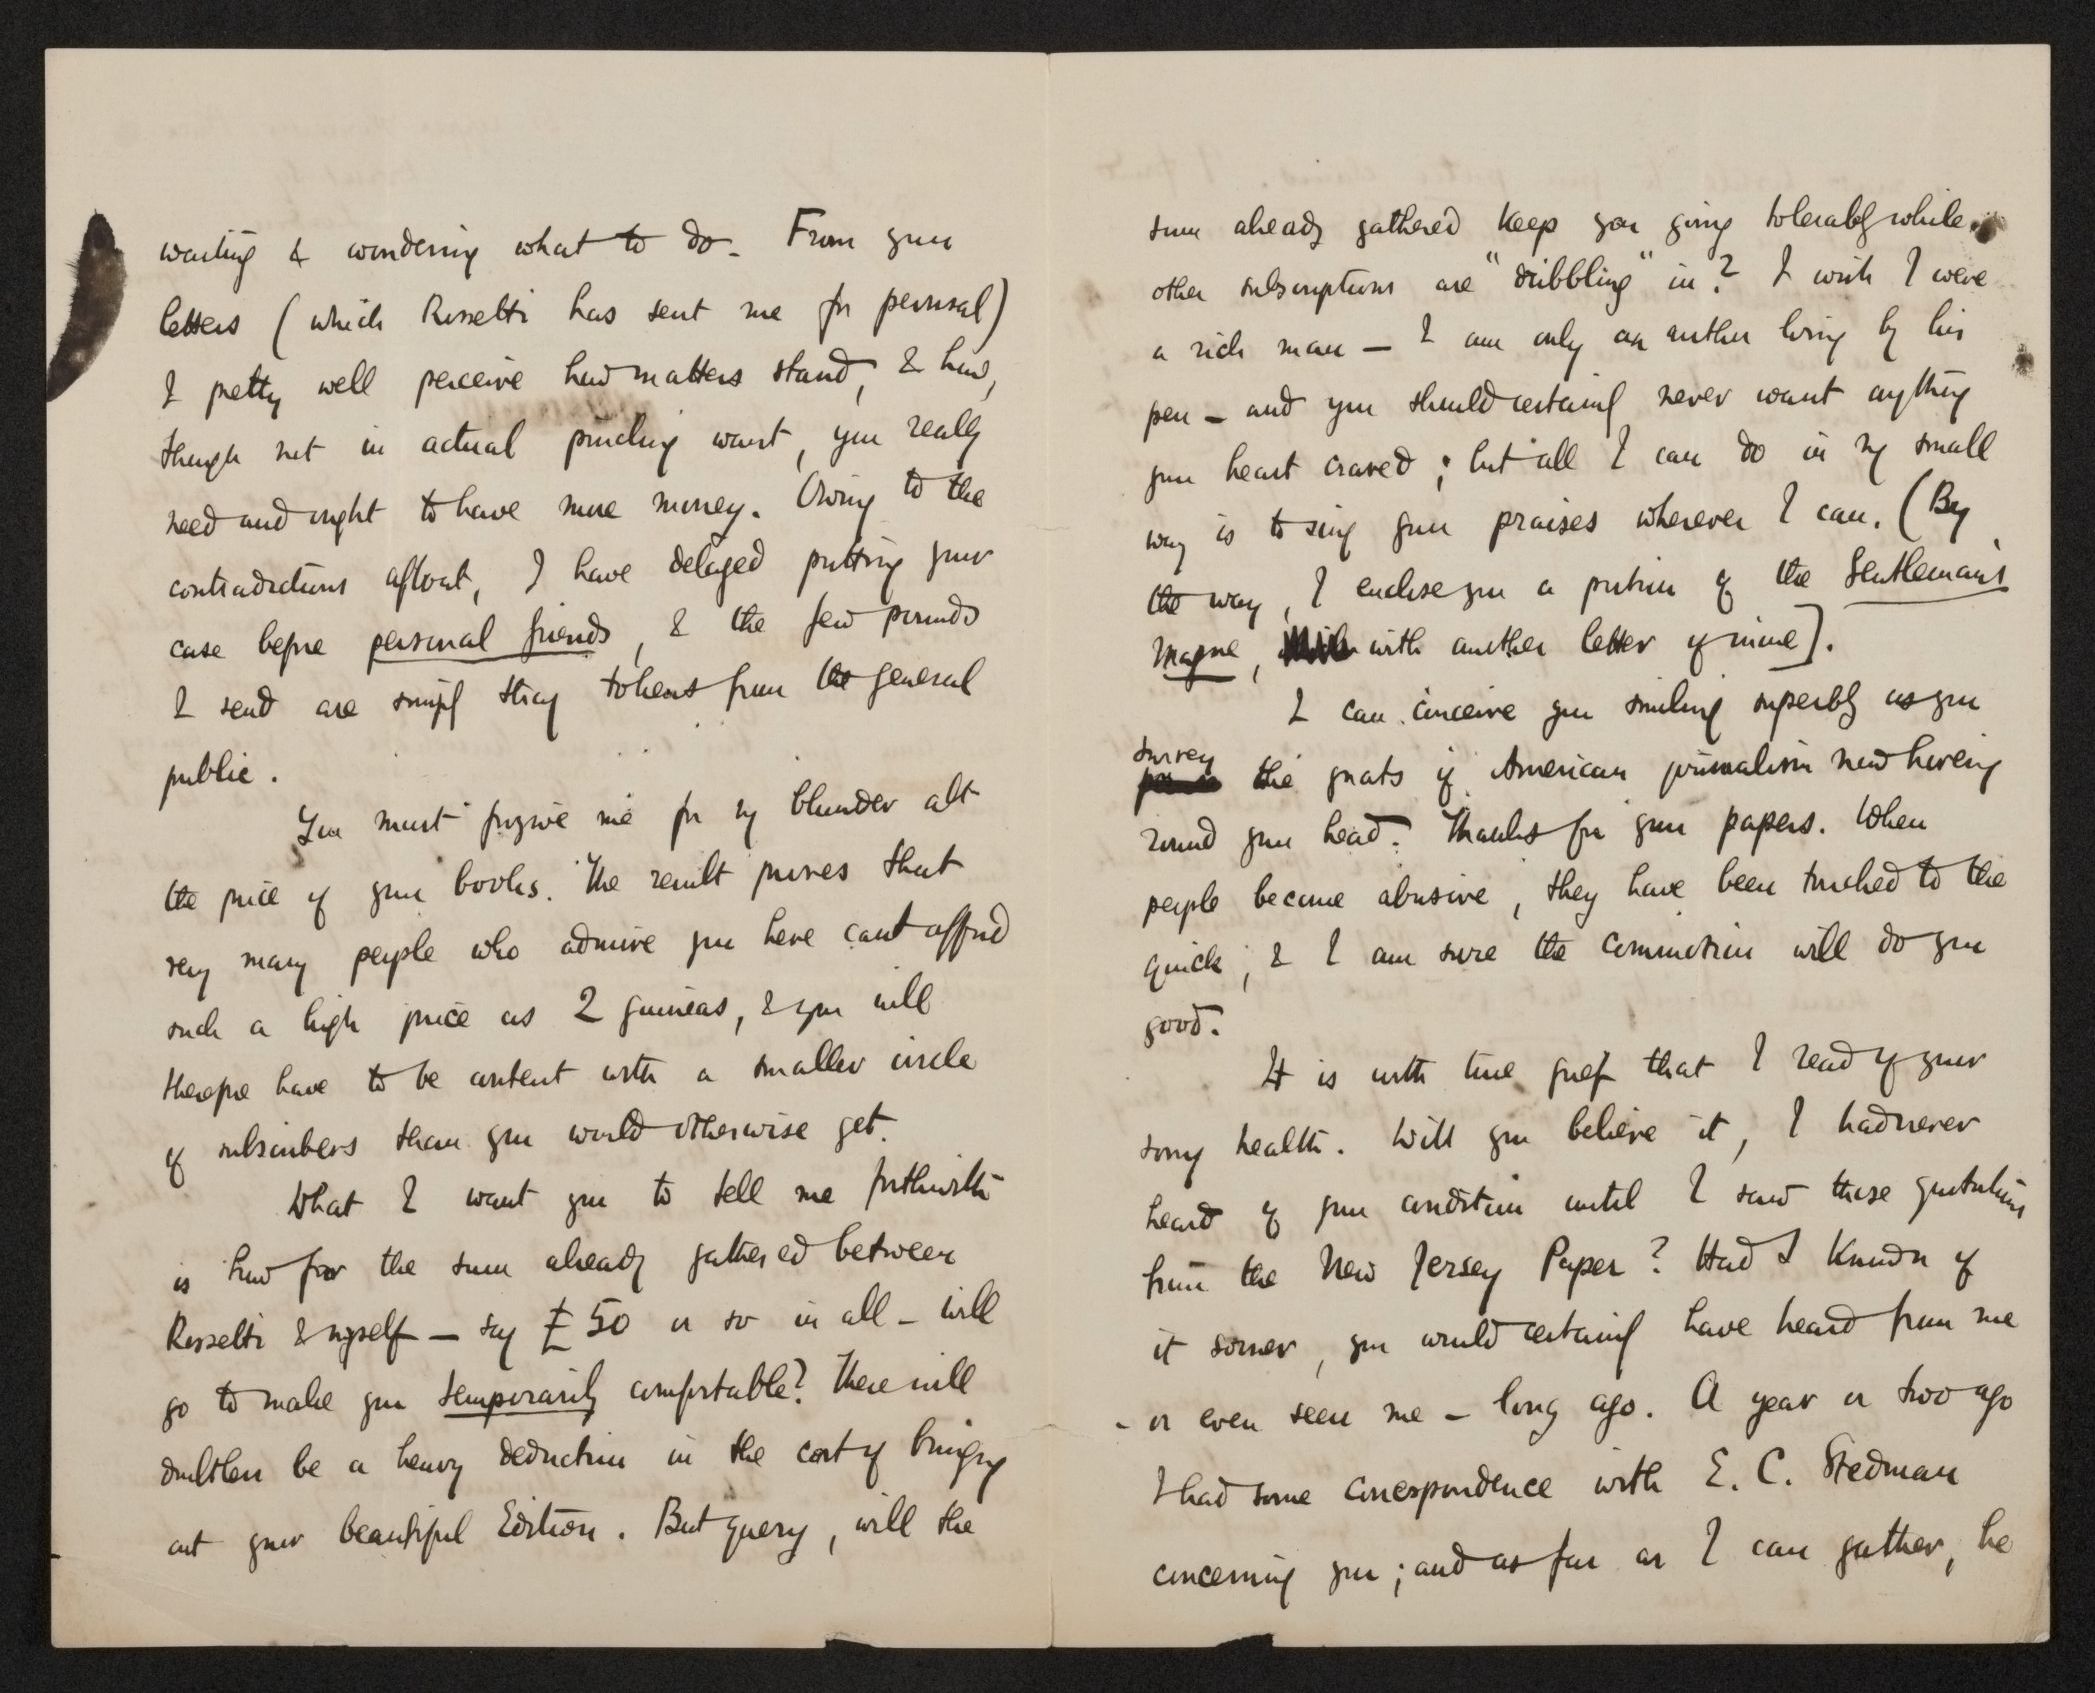 waiting & wondering what to do. From your
letters (which Rossetti has sent me for perusal)
I pretty well perceive how matters stand, & how,
though not in actual pinching want, you really
need and ought to have more money. Owing to the
contradictions afloat, I have delayed putting your
case before personal friends, & the few pounds
I send are simply stray tokens from the general
public.
You must forgive me for my blunder abt
the price of your books. The result proves that
very many people who admire you here cant afford
such a high price as 2 guineas, & you will
therefore have to be content with a smaller circle
of subscribers than you would otherwise get.
What I want you to tell me forthwith
is how far the sum already gathered between
Rossetti & myself — say £50 or so in all — will
go to make you temporarily comfortable? There will
doubtless be a heavy deduction in the cost of bringing
out your beautiful Edition. But query, will the
sum already gathered keep you going tolerably while
other subscriptions are "dribbling" in? I wish I were
a rich man — I am only an author living by his
pen — and you should certainly never want anything
your heart craved; but all I can do in my small
way is to sing your praises wherever I can. (By
the way, I enclose you a portion of the Gentleman's
Magne, with another letter of mine].
I can conceive you smiling superbly as you
survey the gnats of American journalism now hovering
round your head. Thanks for your papers. When
people become abusive, they have been touched to the
quick, & I am sure the commotion will do you
good.
It is with true grief that I read of your
sorry health. Will you believe it, I had never
heard of your condition until I saw those quotations
from the New Jersey Paper? Had I known of
it sooner, you would certainly have heard from me
— or even seen me — long ago. A year or two ago
I had some correspondence with E. C. Stedman
concerning you; and as far as I can gather, he